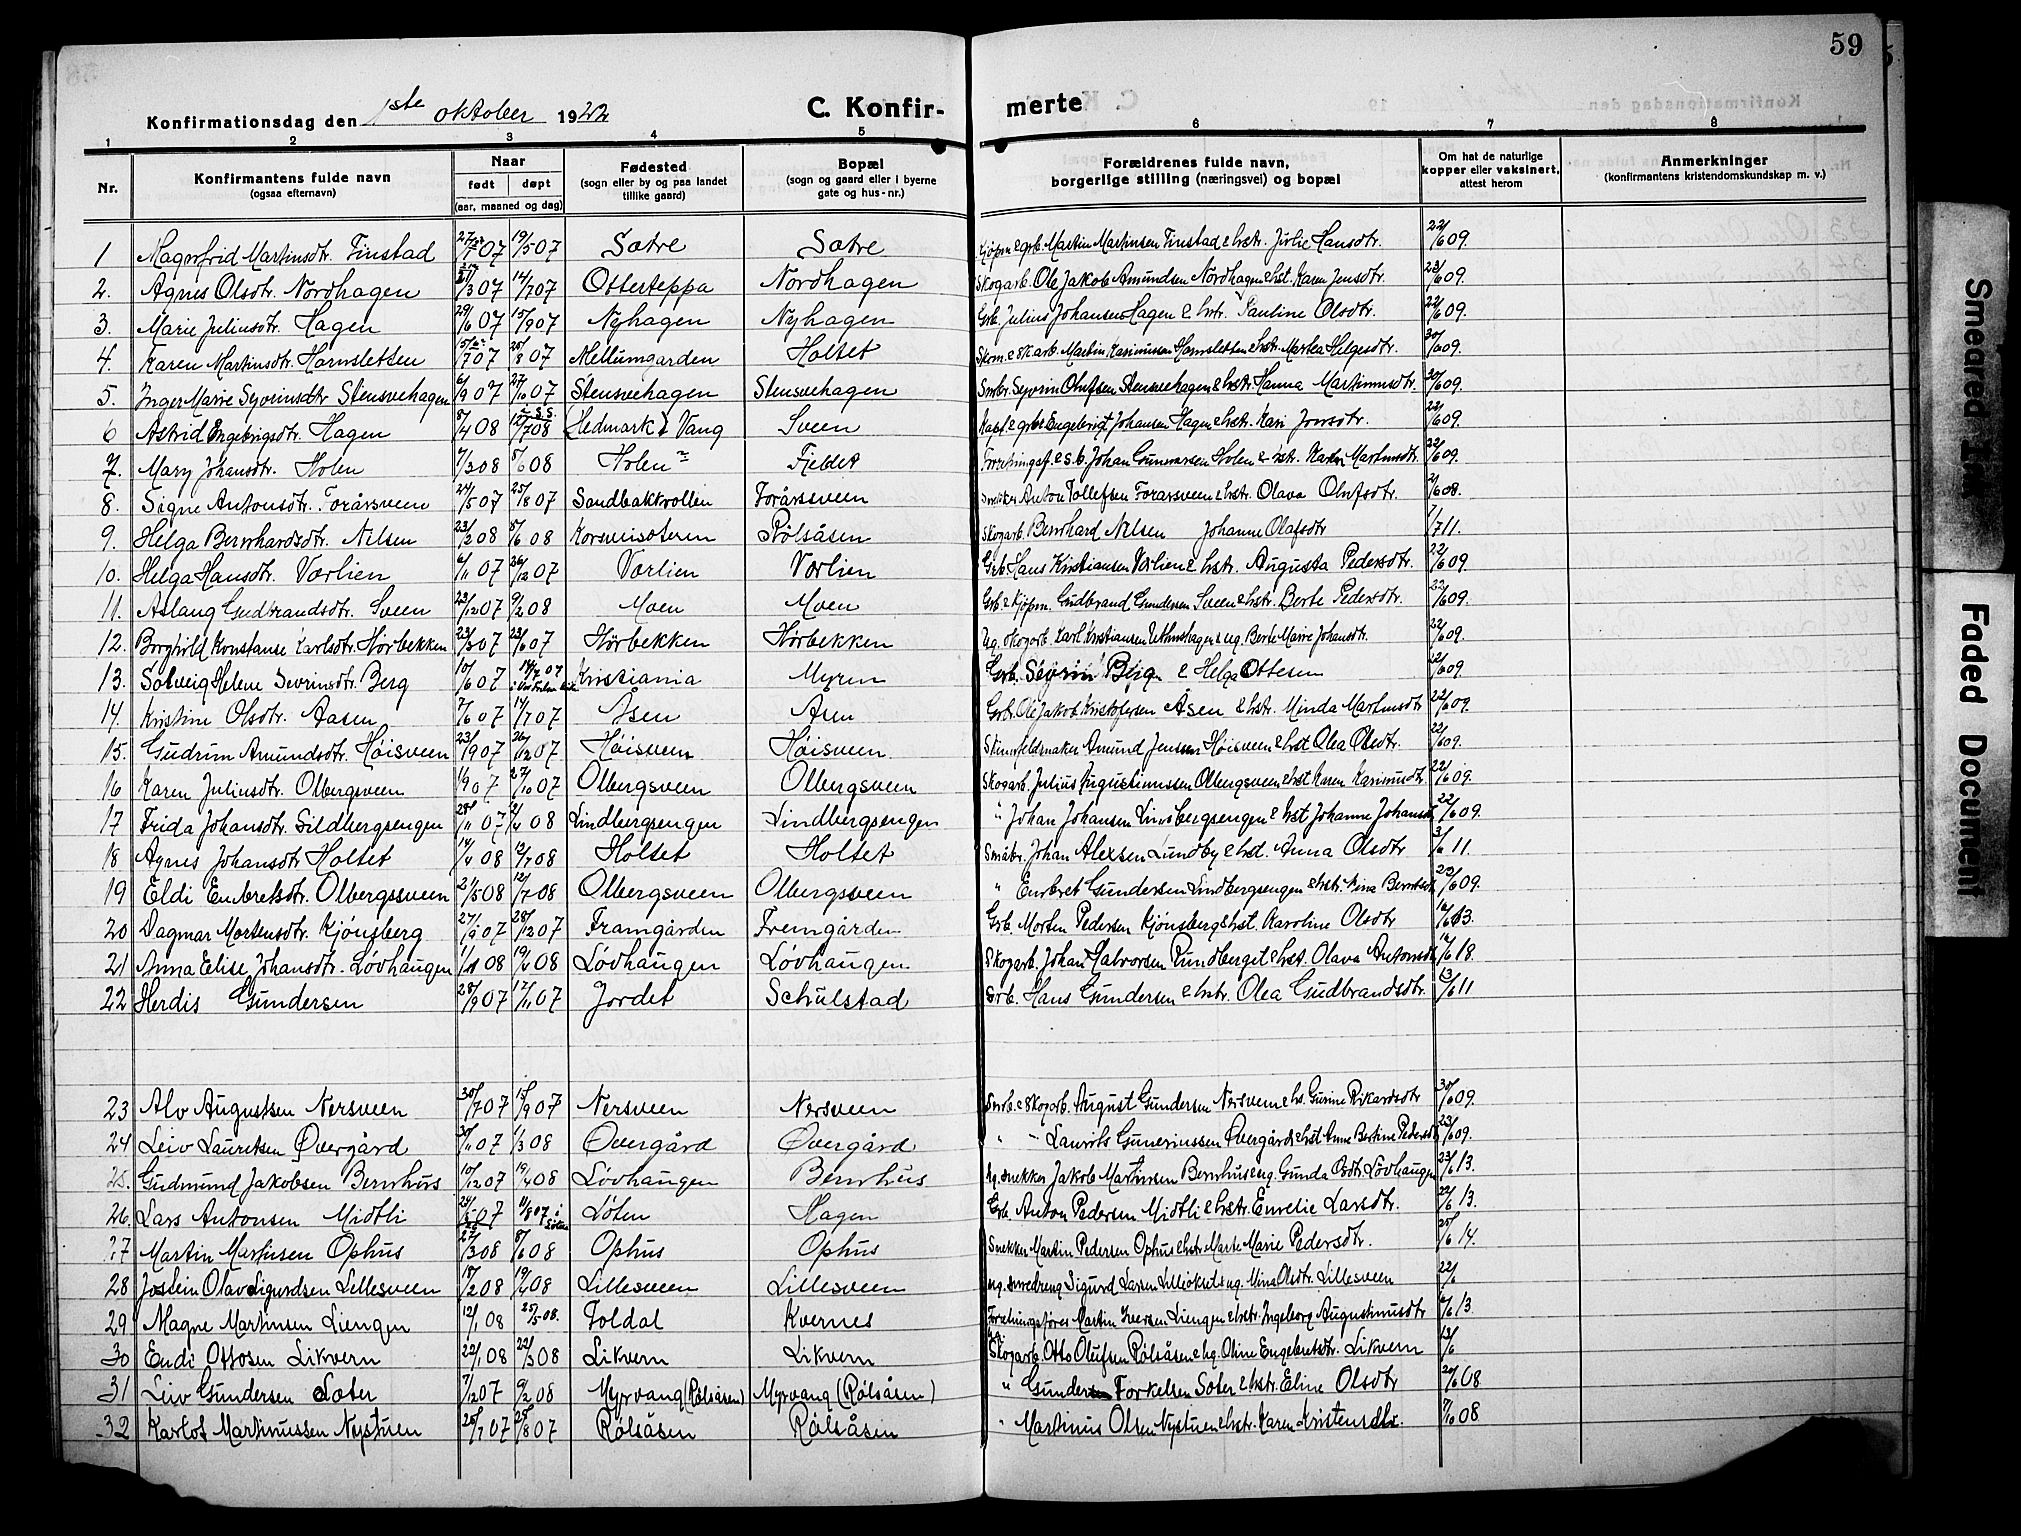 59
Konfirmationsdag den 1ste oktober 1922
C. Konfirmerte
1 2 3 4 5 6 7 8
Nr.
Konfirmantens fulde navn
(ogsaa efternavn)
Naar
født døpt
(aar, maaned og dag)
Fødested
(sogn eller by og paa landet
tillike gaard)
Bopæl
(sogn og gaard eller i byerne
gate og hus-nr.)
Forældrenes fulde navn,
borgerlige stilling (næringsvei) og bopæl
Om hat de naturlige
kopper eller vaksinert,
attest herom
Anmerkninger
(konfirmantens kristendomskundskap m. v.)
1 Magnfrid Martinsdtr. Finstad 07 19/5 07 Sætre Sætre Kjøpm. & grb. Martin Martinsen Finstad & hstr. Hansdtr. 22/6 09.
2. Agnes Olsdtr. Nordhagen 3 07 14/7 07 Otterteppa Nordhagen Skogarb. Ole Jakob Amundsen Nordhagen & hst. Karen Jensdtr. 23/6 09.
3. Marie Juliusdtr. Hagen 29/6 07 15/9 07 Nyhagen Nyhagen Grb. Julius Johansen Hagen & hstr. Pauline Olsdtr. 22/6 09.
4. Karen Martinsdtr. Hornsletten 07 25/8 07 Mellumgarden Holtet Martin Hornsletten & hstr. Martea Helgesdtr. 30/6 09.
5. Inger Marie Syverinsdtr Stensvehagen 6/9 07 27/10 07 Stensvehagen Stensvehagen Smbr. Syverin Olufsen Stensvehagen & hstr. Hanna Martinusdtr. 20/6 09.
6 Astrid Engebrigtsdtr. Hagen 8/4 08 12/7 08 Hedmark Vang Sveen Kapt. & grbr Engebrigt Johansen Hagen & hstr. Kari Jonsdtr. 22/6 09.
7. Mary Johansdtr. Holen 7/2 08 8/6 08 Holen Fjeldet Forretningsf. & s.b. Johan Gunnarsen Holen & hst. Karen Martinsdtr. 22/6 09.
8. Signe Antonsdtr. Forårsveen 24/5 07 25/8 07 Sandbakkvollen Forårsveen Snekker Anton Tollefsen Forårsveen & hstr. Olava Olufsdtr. 2/6 08.
9. Helga Bernhardsdtr. Nilsen 23/2 08 8/6 08 Korsveisæteren Rølsåsen Skogarb. Bernhard Nilsen Johanne Olafsdtr 1/7 11.
10. Helga Hansdtr. Vorlien 6/11 07 26/12 07 Vorlien Vorlien Grb. Hans Kristiansen Vorlien & hstr. Augusta Pedersdtr. 22/6 09.
11. Aslaug Gudbrandsdtr. Sveen 23/12 07 9/2 08 Moen Moen Grb. & kjøpm. Gudbrand Gundersen Sveen & hstr. Berte Pedersdtr. 22/6 09.
12. Borghild Konstanse Karlsdtr. Hørbekken 23/3 07 23/6 07 Hørbekken Hørbekken Ug. skogarb. Karl Kristiansen & ug. Berte Marie Johansdtr. 22/6 09.
13. Solveig Helene Severinsdtr. Berg 10/6 07 14/7 07 Kristiania Myren Grb. Severin Berg & Helga Ottesen 22/6 09
14. Kristine Olsdtr. Aasen 7/6 07 14/7 07 Åsen Åsen Grb. Ole Jakob Kristofersen Åsen & hstr. Minda Martinsdtr 22/6 09.
15. Gudrun Amundsdtr. Høisveen 23/9 07 26/12 07 Høisveen Høisveen Skinnfeldmaker Amund Jensen Høisveen & hst Olea Olsdtr. 22/6 09.
16 Karen Juliusdtr. Olbergsveen 07 27/10 07 Olbergsveen Olbergsveen Skogarb. Julius Augustinussen Olbergsveen & hst Karen Karinusdtr 22/6 09.
17 Frida Johansdtr. Sildbergsengen 28/11 07 2/4 08 Lindbergsengen Lindbergsengen " Johan Johansen Lindbergsengen & hst Johanne Johansdtr 22/6 09.
18 Agnes Johansdtr Holtet 14/4 08 12/7 08 Holtet Holtet Småbr. Johan Alexsen Lundby & hst. Anna Olsdtr 3/6 11.
19 Eldi Enbretsdtr. Olbergssveen 21/5 08 12/7 08 Olbergsveen Olbergsveen " Enbret Gundersen Lindbergsengen & hstr. 23/6 09.
20 Dagmar Mortensdtr. Kjønsberg 27/9 07 28/12 07 Framgården Fremgården Grb. Morten Pedersen Kjønsberg & hst. Karoline Olsdtr 13.
21 Anna Elise Johansdtr. Løvhaugen 1/1 08 19/4 08 Løvhaugen Løvhaugen Skogarb. Johan Halvorsen Rundberget & hst. Olava Antonsdtr 18.
22 Herdis Gundersen 28/9 07 17/11 07 Jordet Schulstad Grb. Hans Gundersen & hstr. Olea Gudbrandsdtr. 13/6 11
23 Alv Augustsen Nersveen 30/7 07 15/9 07 Nersveen Nersveen Smbr. & Skogarb. August Gundersen Nersveen & hs. Gurine Rikardsdtr 30/6 09.
24 Leiv Lauritsen Øvergård 30/11 07 1/3 08 Øvergård Øvergård " Laurits Guneriussen Øvergård & hst Anne Bertine Pedersdtr 23/6 09.
25. Gudmund Jakobsen Bernhus 10/12 07 19/4 08 Løvhaugen Bernhus Ug. snekker Jakob Martinsen Bernhus & ug. Gunda Osdtr. Løvhaugen 23/6 13.
26. Lars Antonsen Midtli 24/5 07 11/8 07 i Løten Løten Hagen Grb. Anton Pedersen Midtli & hstr. Emelie Larsdtr. 22/6 13.
27 Martin Martinsen Ophus 27/3 08 8/6 08 Ophus Ophus Snekker Martin Pedersen Ophus & hstr Marte Marie Pedersdtr. 25/6 14.
28 Jostein Olav Sigurdsen Lillesveen 18/2 08 19/4 08 Lillesveen Lillesveen Ug. Sigurd Larsen & ug. Mina Olsdtr. Lillesveen 22/6
29 Magne Martinsen Liengen 12/1 08 25/5 08. Foldal Kvernes Forretningsfører Martin Iversen Liengen & hstr. Ingeborg Augustinusdtr 13.
30 Endi Ottosen Likvern 22/1 08 22/3 08 Likvern Likvern Skogarb. Otto Olufsen Rølsåsen & ug. Oline Engebretsdtr. Likvern 13/6
31 Leiv Gundersen Sæter 7/12 07 9/2 08 Myrvang (Rølsåsen) Myrvang (Rølsåsen) " Gunder Torkelsen Sæter & hstr. Eline Olsdtr 20/6 08
32 Karlot Martinussen Nystuen 25/7 07 25/8 07 Rølsåsen Rølsåsen " Martinus Olsen Nystuen & hstr. Karen Kristensdtr. 7/10 08
Smeared Ink
Faded Document